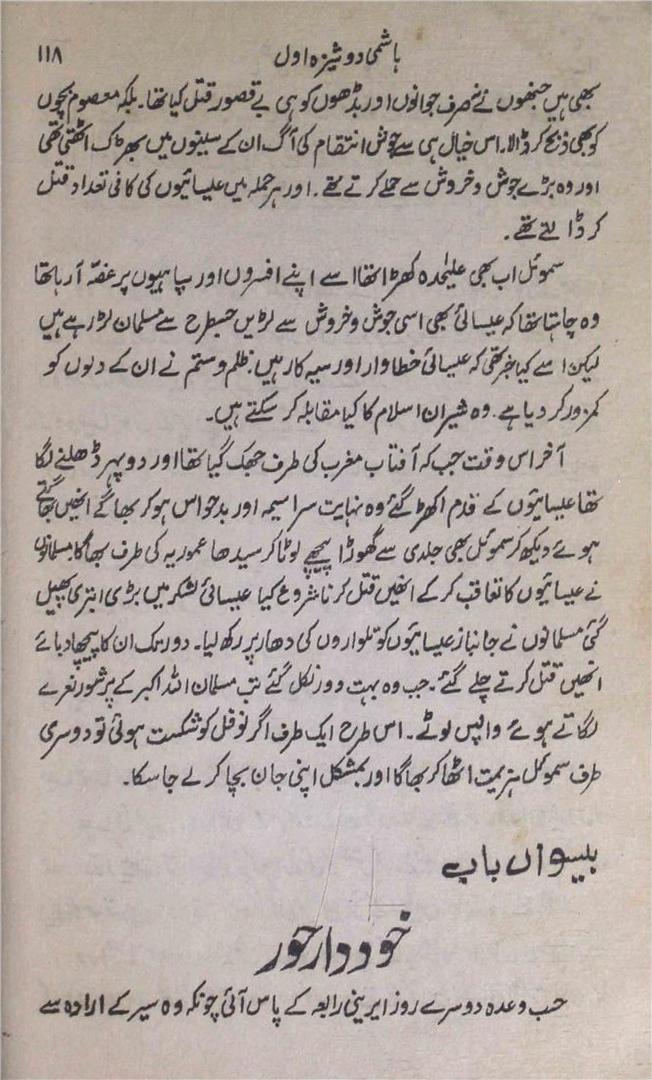 ۱۱۸
ہاشمی دوشیزہ اول
بھی ہیں جنھوں نے نہ صرف جوانوں اور بڈھوں کو ہی بے قصور قتل کیا تھا۔ بلکہ معصوم بچوں
کو بھی ذبح کر ڈالا۔ اس خیال ہی سے جوش انتقام کی آگ ان کے سینوں میں بھڑک اٹھتی تھی
اور وہ بڑے جوش و خروش سے حملے کرتے تھے۔ اور ہر حملہ میں عیسائیوں کی کافی تعداد قتل
کر ڈالتے تھے۔
سموئل اب بھی علیٰحدہ کھڑا تھا اسے اپنے افسروں اور سپاہیوں پر غصّہ آرہا تھا
وہ چاہتا تھا کہ عیسائی بھی اسی جوش و خروش سے لڑیں جسطرح سے مسلمان لڑ رہے ہیں
لیکن اسے کیا خبر تھی کہ عیسائی خطاوار اور سیہ کار ہیں۔ ظلم و ستم نے ان کے دلوں کو
کمزور کر دیا ہے۔ وہ شیران اسلام کا کیا مقابلہ کر سکتے ہیں۔
آخر اس وقت جب کہ آفتاب مغرب کی طرف جھک گیا تھا اور دوپہر ڈھلنے لگا
تھا عیسائیوں کے قدم اکھڑ گئے وہ نہایت سراسیمہ اور بدحواس ہو کر بھاگے انھیں بھاگتے
ہوئے دیکھ کر سموئل بھی جلدی سے گھوڑا پیچھے لوٹا کر سیدھا عموریہ کی طرف بھاگا مسلمانوں
نے عیسائیوں کا تعاقب کر کے انھیں قتل کرنا شروع کیا عیسائی لشکر میں بڑی ابتری پھیل
گئی مسلمانوں نے جانباز عیسائیوں کو تلواروں کی دھار پر رکھ لیا۔ دور تک ان کا پیچھا دبائے
انھیں قتل کرتے چلے گئے۔ جب وہ بہت دور نکل گئے تب مسلمان اللہ اکبر کے پرشور نعرے
لگاتے ہوئے واپس لوٹے۔ اس طرح ایک طرف اگر نوفل کو شکست ہوئی تو دوسری
طرف سموئل ہزیمت اٹھا کر بھاگا اور بمشکل اپنی جان بچا کر لے جا سکا۔
بیسواں باب
خوددار حور
حسب وعدہ دوسرے روز ایرینی رابعہ کے پاس آئی چونکہ وہ سیر کے ارادہ سے